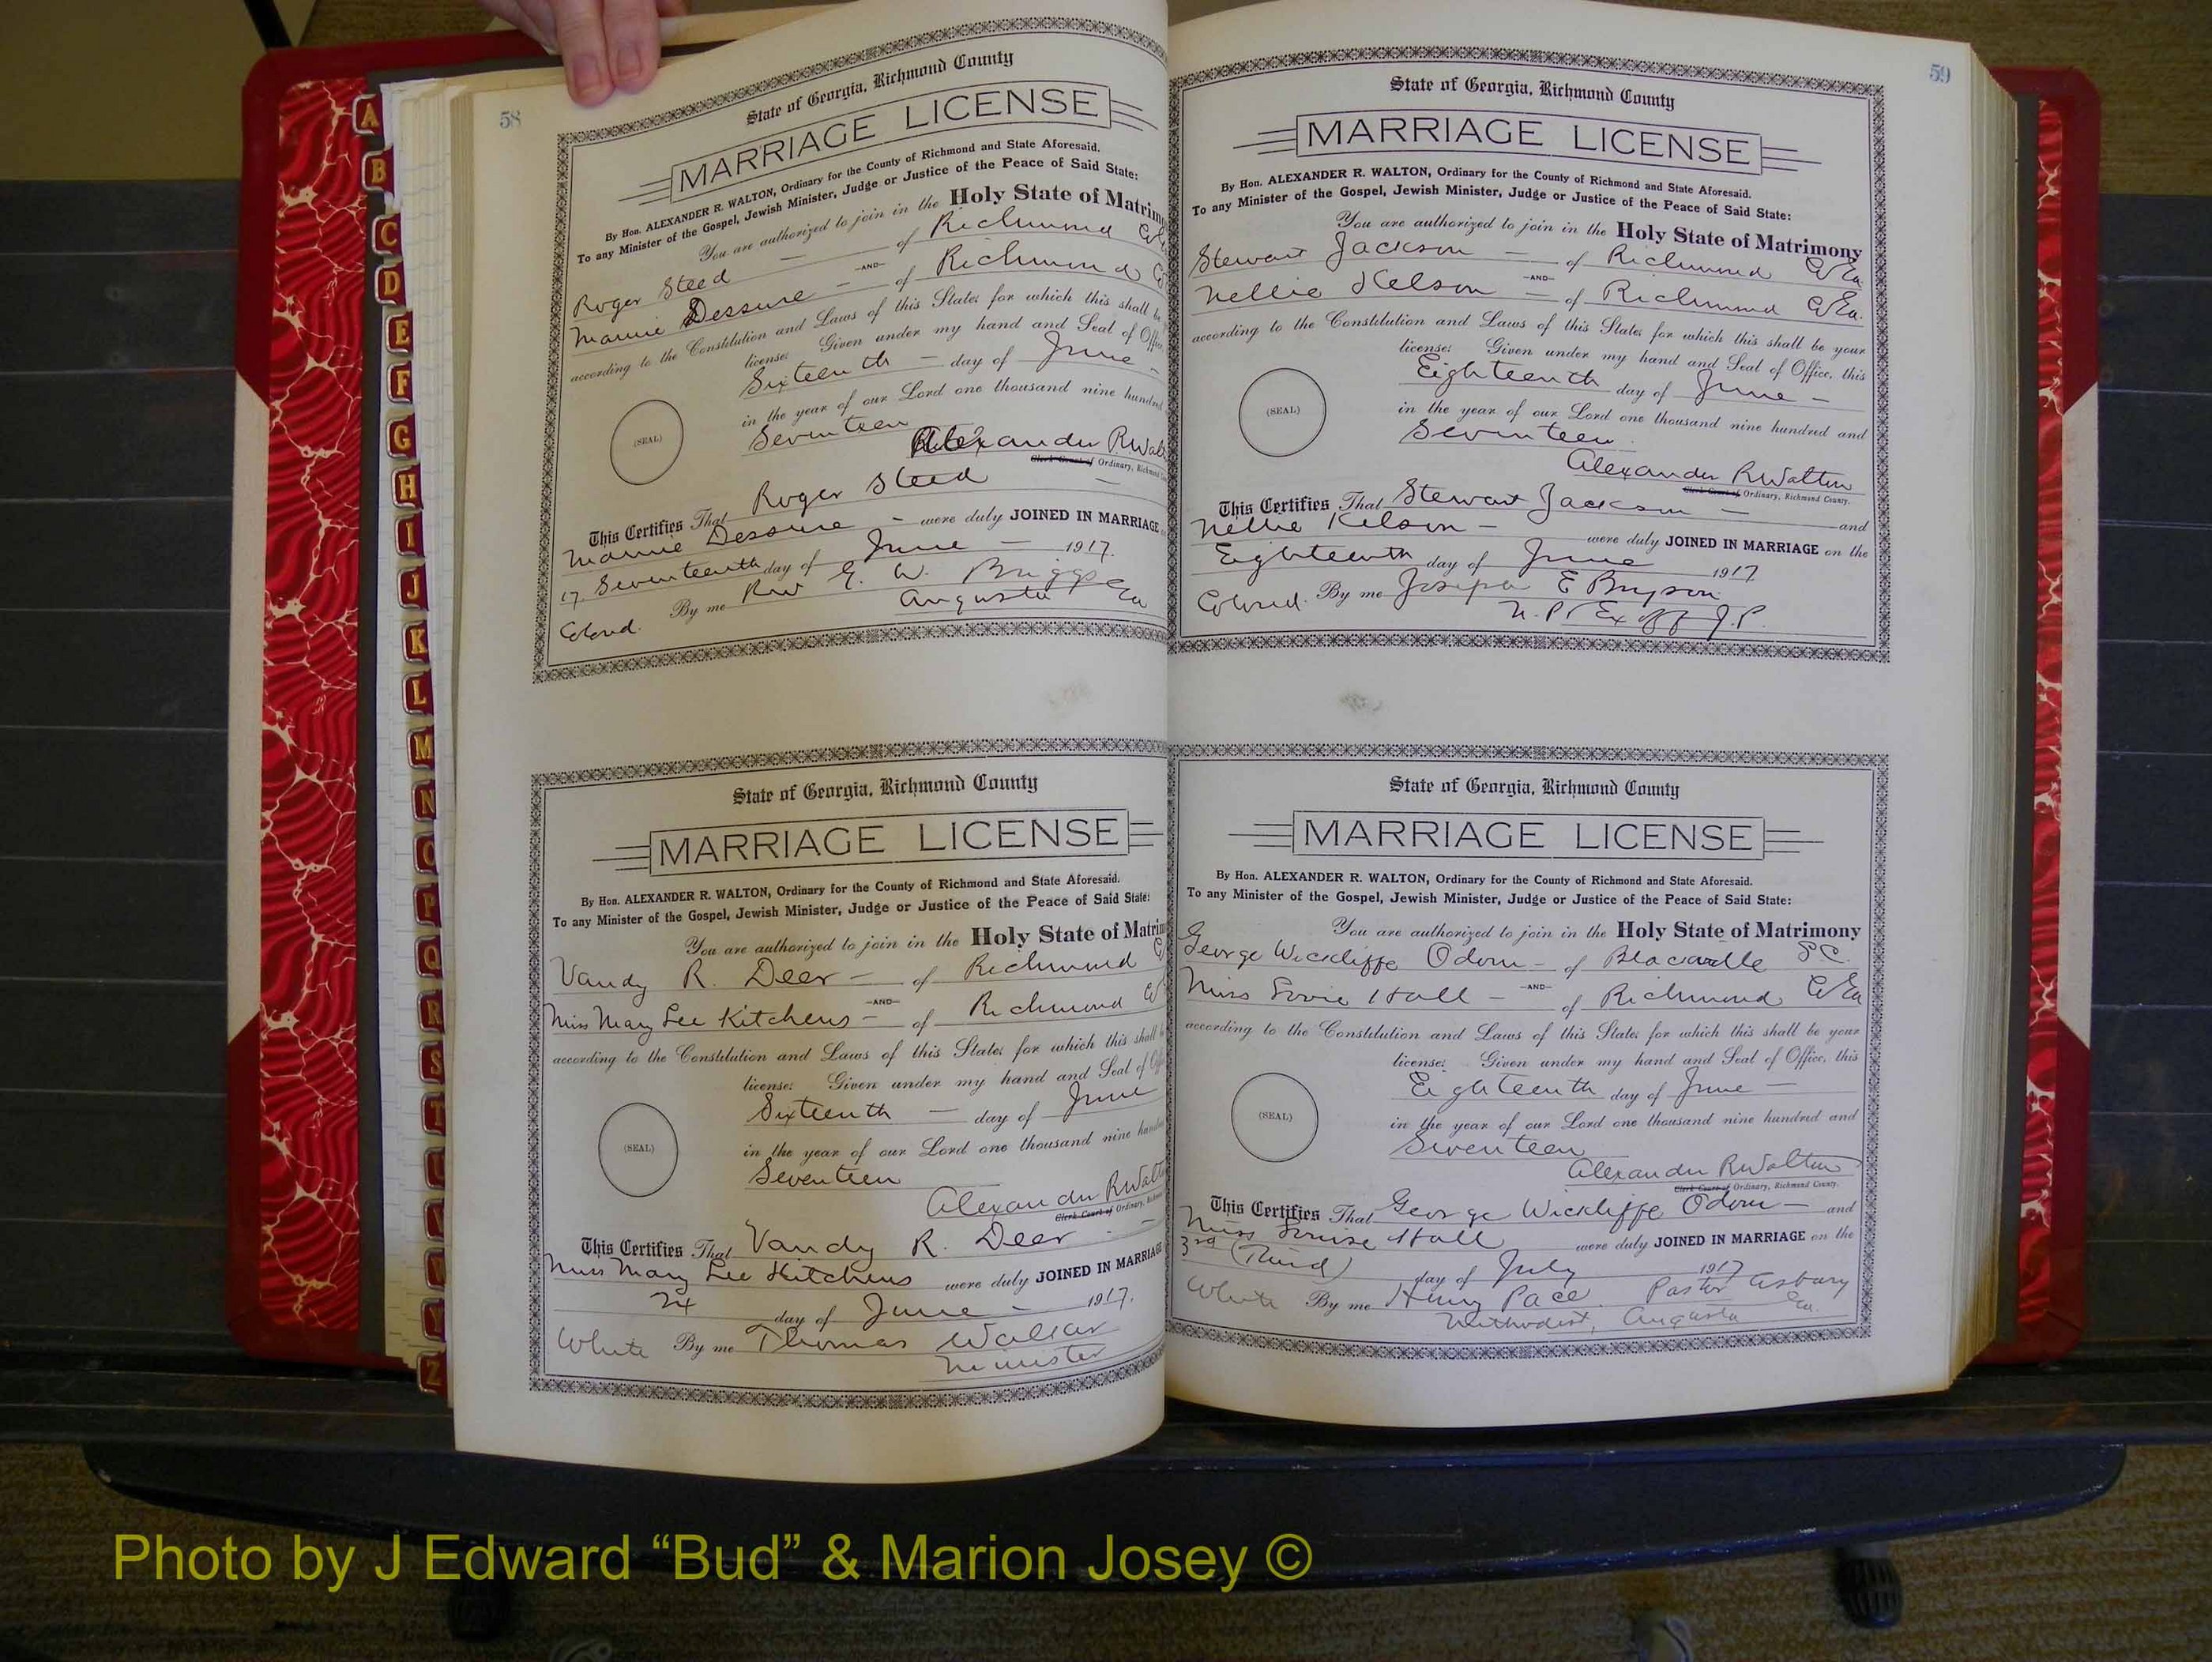 58
State of Georgia, Richmond County
MARRIAGE LICENSE
By Hon. ALEXANDER R. WALTON, Ordinary for the County of Richmond and State Aforesaid.
To any Minister of the Gospel, Jewish Minister, Judge or Justice of the Peace of Said State:
You are authorized to join in the Holy State of Matrimo
Roger Steed — of Richmond Co
—AND—
Mamie Dessure — of Richmond C
according to the Constitution and Laws of this State, for which this shall be
license. Given under my hand and Seal of Office
Sixteenth — day of June —
in the year of our Lord one thousand nine hundred
Seventeen
(SEAL)
Alexander R Walt
Clerk Court of Ordinary, Richmond
This Certifies That Roger Steed —
Mamie Dessure — were duly JOINED IN MARRIAGE
17 Seventeenth day of June — 1917.
Colored. By me Rev E. W. Briggs
Augusta Ga
State of Georgia, Richmond County
MARRIAGE LICENSE
By Hon. ALEXANDER R. WALTON, Ordinary for the County of Richmond and State Aforesaid.
To any Minister of the Gospel, Jewish Minister, Judge or Justice of the Peace of Said State:
You are authorized to join in the Holy State of Matrim
Vandy R. Deer — of Richmond C
—AND—
Miss Mary Lee Kitchens — of Richmond C
according to the Constitution and Laws of this State, for which this shall b
license. Given under my hand and Seal of Off
Sixteenth — day of June
in the year of our Lord one thousand nine hundred
Seventeen
(SEAL)
Alexander R Walt
Clerk Court of Ordinary, Richmond
This Certifies That Vandy R. Deer —
Miss Mary Lee Kitchens were duly JOINED IN MARRIAGE
24 day of June — 1917.
White By me Thomas Walker
Minister
59
State of Georgia, Richmond County
MARRIAGE LICENSE
By Hon. ALEXANDER R. WALTON, Ordinary for the County of Richmond and State Aforesaid.
To any Minister of the Gospel, Jewish Minister, Judge or Justice of the Peace of Said State:
You are authorized to join in the Holy State of Matrimony
Stewart Jackson — of Richmond Co Ga
—AND—
Nellie Kelson — of Richmond Co Ga.
according to the Constitution and Laws of this State, for which this shall be your
license. Given under my hand and Seal of Office, this
Eighteenth day of June —
in the year of our Lord one thousand nine hundred and
Seventeen
(SEAL)
Alexander R Walton
Clerk Court of Ordinary, Richmond County.
This Certifies That Stewart Jackson — and
Nellie Kelson — were duly JOINED IN MARRIAGE on the
Eighteenth day of June 1917
Colored. By me Joseph E Bryson
N. P. Ex off J.P.
State of Georgia, Richmond County
MARRIAGE LICENSE
By Hon. ALEXANDER R. WALTON, Ordinary for the County of Richmond and State Aforesaid.
To any Minister of the Gospel, Jewish Minister, Judge or Justice of the Peace of Said State:
You are authorized to join in the Holy State of Matrimony
George Wickliffe Odom — of Blackville S.C.
—AND—
Miss Hall — of Richmond Co Ga
according to the Constitution and Laws of this State, for which this shall be your
license. Given under my hand and Seal of Office, this
Eighteenth day of June —
in the year of our Lord one thousand nine hundred and
Seventeen
(SEAL)
Alexander R Walton
Clerk Court of Ordinary, Richmond County.
This Certifies That George Wickliffe Odom — and
Miss Louise Hall were duly JOINED IN MARRIAGE on the
3rd (Third) day of July 1917
White By me Henry Pace. Pastor Asbury
Methodist, Augusta Ga.
A
B
C
D
E
F
G
H
I
J
K
L
M
N
O
P
Q
R
S
T
U
V
W
Y
Z
Photo by J Edward “Bud” & Marion Josey ©